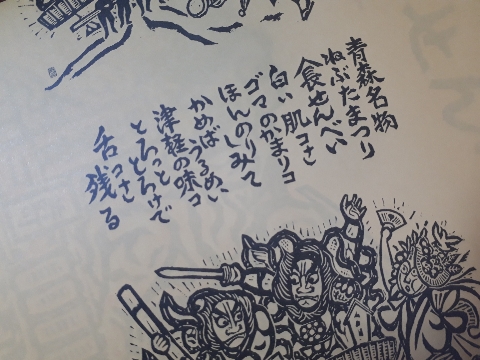 青森名物
ねぶたまつり
食せんべい
白い肌コさ
ゴマのかまりコ
ほんのりしみて
かめばうるめいい
津軽の味コ
とろっと
とろけで
舌コさ
残る